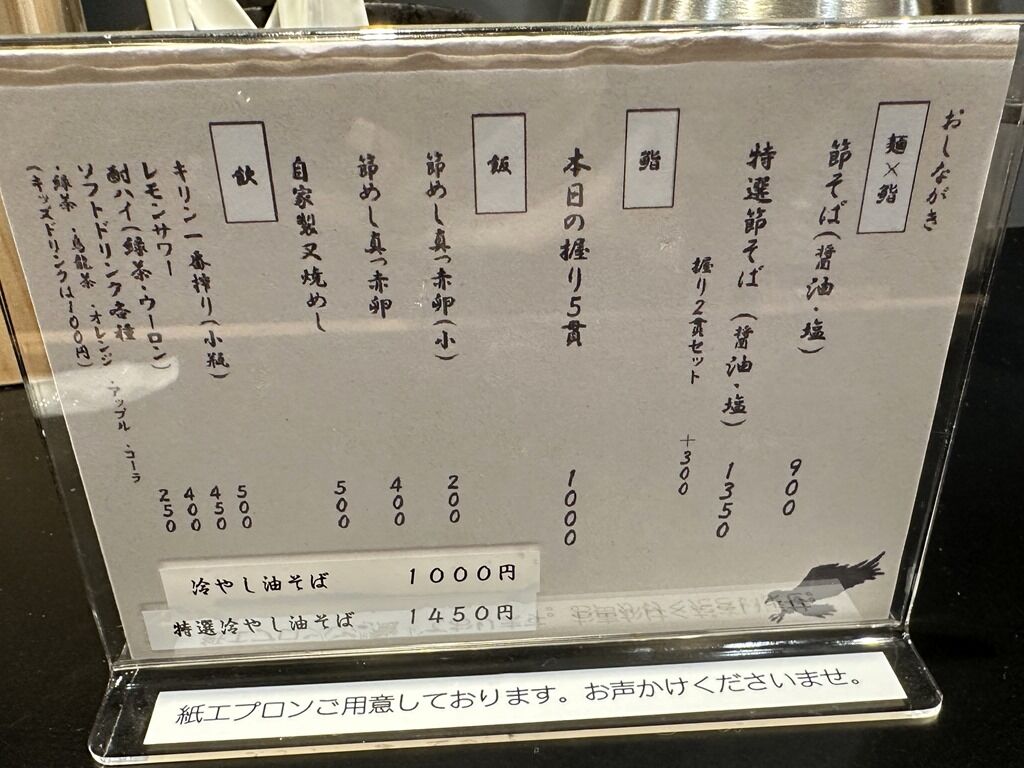 おしながき
麺×鮨
節そば(醤油・塩) 900
特選節そば(醤油・塩) 1350
握り2貫セット +300
鮨
本日の握り5貫 1000
飯
節めし真っ赤卵(小) 200
節めし真っ赤卵 400
自家製叉焼めし 500
飲
キリン一番搾り(小瓶) 500
レモンサワー 450
酎ハイ(緑茶・ウーロン) 400
ソフトドリンク各種 250
・緑茶・烏龍茶・オレンジ・アップル・コーラ
(キッズドリンクは100円)
冷やし油そば 1000円
特選冷やし油そば 1450円
紙エプロンご用意しております。お声かけくださいませ。